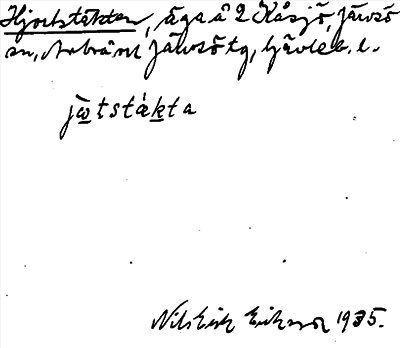 Hjortstäkten, äga å 2 Kåsjö, Järvsö
sn, Arbrå och Järvsö tg, Gävleb. l.
jo̲tstäk̲ta
Nils Erik Eriksson 1935.